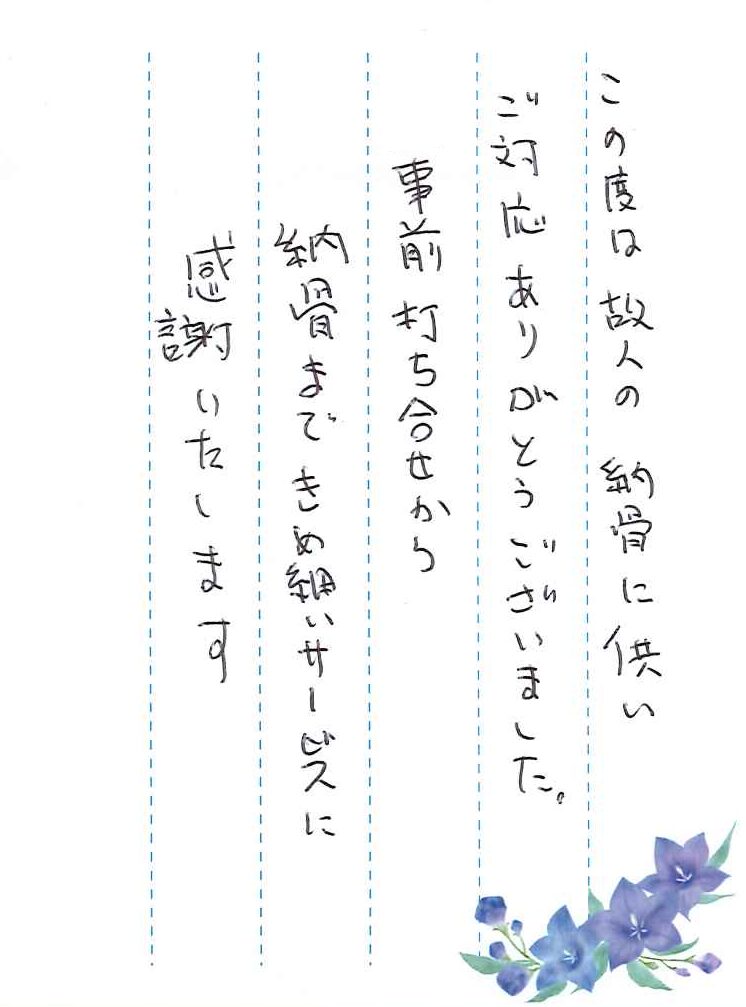 この度は故人の納骨に供い
ご対応ありがとうございました。
事前打ち合せから
納骨まできめ細いサービスに
感謝いたします